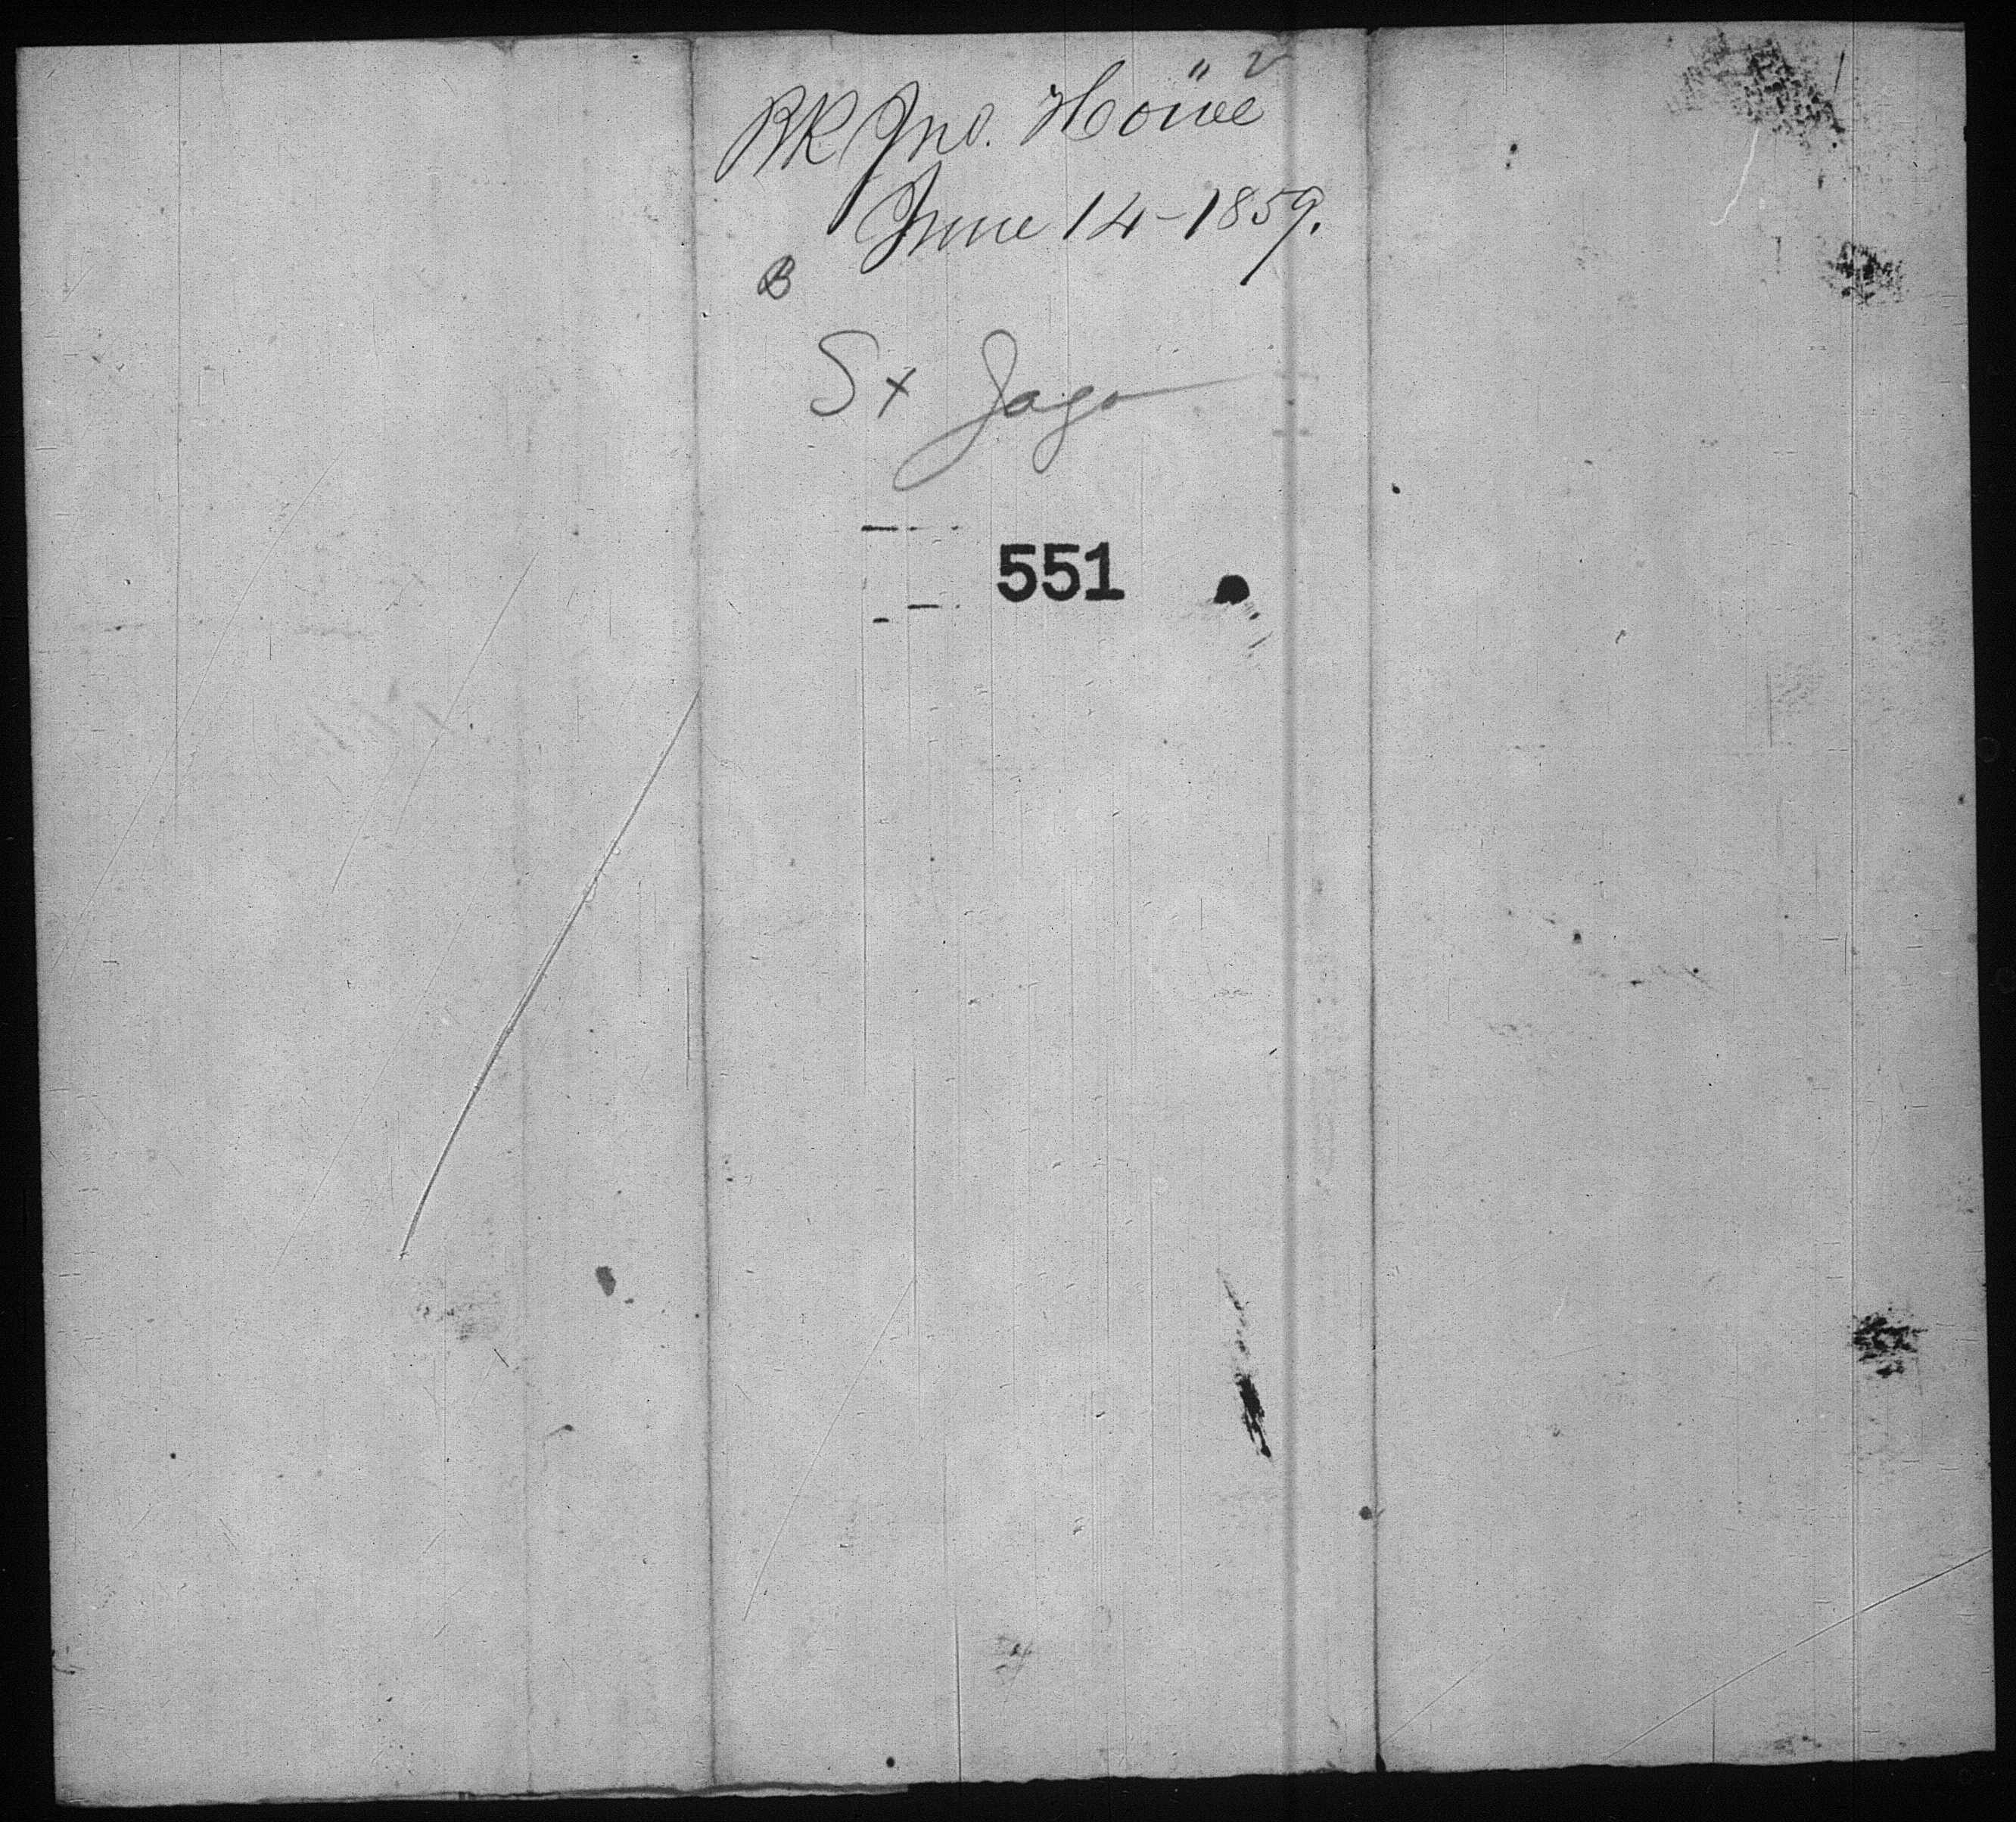 RR Jno. Howe
June 14-1859.
B
Sx Jago
551